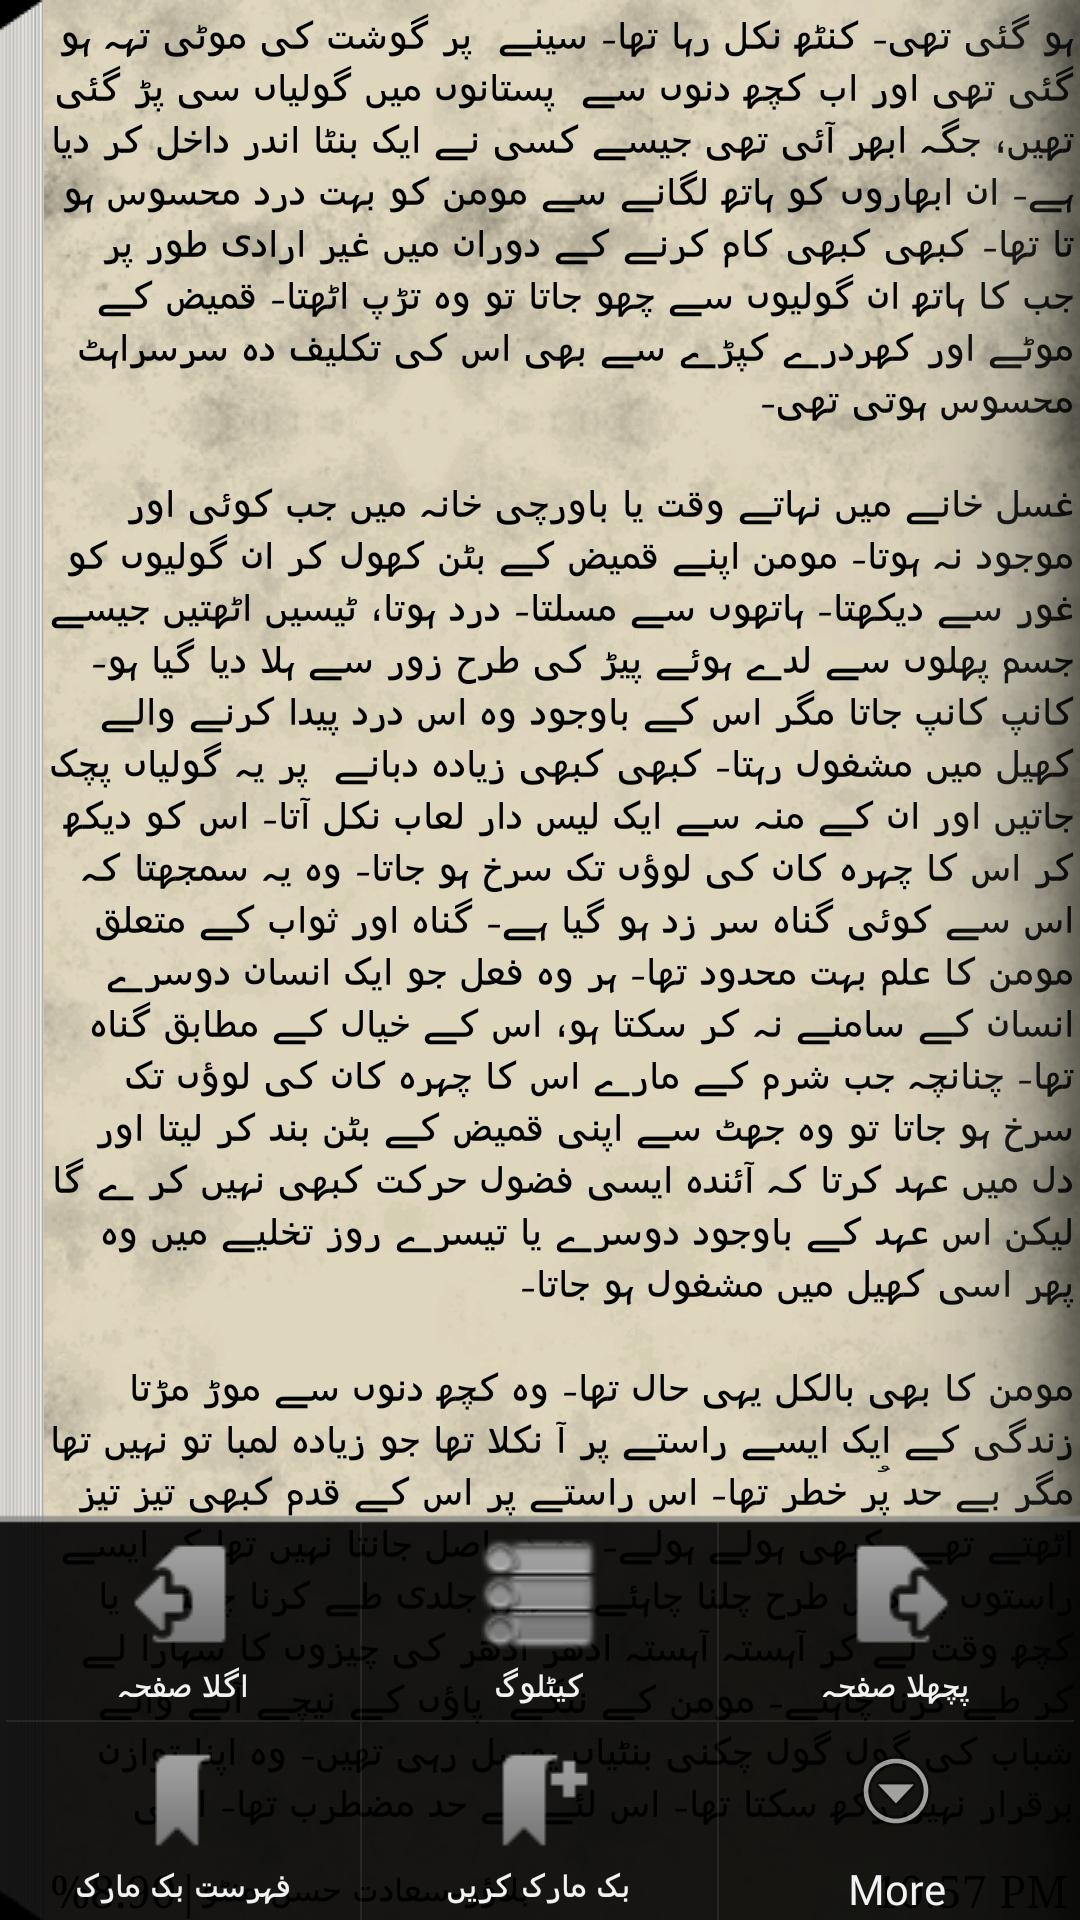 ہو گئی تھی۔ کنٹھ نکل رہا تھا۔ سینے پر گوشت کی موٹی تہہ ہو
گئی تھی اور اب کچھ دنوں سے پستانوں میں گولیاں سی پڑ گئی
تھیں، جگہ ابھر آئی تھی جیسے کسی نے ایک بنٹا اندر داخل کر دیا
ہے۔ ان ابھاروں کو ہاتھ لگانے سے مومن کو بہت درد محسوس ہو
تا تھا۔ کبھی کبھی کام کرنے کے دوران میں غیر ارادی طور پر
جب کا ہاتھ ان گولیوں سے چھو جاتا تو وہ تڑپ اٹھتا۔ قمیض کے
موٹے اور کھردرے کپڑے سے بھی اس کی تکلیف دہ سرسراہٹ
محسوس ہوتی تھی۔
غسل خانے میں نہاتے وقت یا باورچی خانہ میں جب کوئی اور
موجود نہ ہوتا۔ مومن اپنے قمیض کے بٹن کھول کر ان گولیوں کو
غور سے دیکھتا۔ ہاتھوں سے مسلتا۔ درد ہوتا، ٹیسیں اٹھتیں جیسے
جسم پھلوں سے لدے ہوئے پیڑ کی طرح زور سے ہلا دیا گیا ہو۔
کانپ کانپ جاتا مگر اس کے باوجود وہ اس درد پیدا کرنے والے
کھیل میں مشغول رہتا۔ کبھی کبھی زیادہ دبانے پر یہ گولیاں پچک
جاتیں اور ان کے منہ سے ایک لیس دار لعاب نکل آتا۔ اس کو دیکھ
کر اس کا چہرہ کان کی لوؤں تک سرخ ہو جاتا۔ وہ یہ سمجھتا کہ
اس سے کوئی گناہ سر زد ہو گیا ہے۔ گناہ اور ثواب کے متعلق
مومن کا علم بہت محدود تھا۔ ہر وہ فعل جو ایک انسان دوسرے
انسان کے سامنے نہ کر سکتا ہو، اس کے خیال کے مطابق گناہ
تھا۔ چنانچہ جب شرم کے مارے اس کا چہرہ کان کی لوؤں تک
سرخ ہو جاتا تو وہ جھٹ سے اپنی قمیض کے بٹن بند کر لیتا اور
دل میں عہد کرتا کہ آئندہ ایسی فضول حرکت کبھی نہیں کر ے گا
لیکن اس عہد کے باوجود دوسرے یا تیسرے روز تخلیے میں وہ
پھر اسی کھیل میں مشغول ہو جاتا۔
مومن کا بھی بالکل یہی حال تھا۔ وہ کچھ دنوں سے موڑ مڑتا
زندگی کے ایک ایسے راستے پر آ نکلا تھا جو زیادہ لمبا تو نہیں تھا
مگر بے حد پُر خطر تھا۔ اس راستے پر اس کے قدم کبھی تیز تیز
اٹھتے تھے کبھی ہولے ہولے۔ اصل جانتا نہیں تھا کہ ایسے
راستوں طرح چلنا چاہئے جلدی طے کرنا یا
کچھ وقت لے کر آہستہ آہستہ ادھر ادھر کی چیزوں کا سہارا لے
کر طے کرنا چاہئے۔ مومن کے ننگے پاؤں کے نیچے آنے والے
شباب کی گول گول چکنی بنٹیاں پھسل رہی تھیں۔ وہ اپنا توازن
برقرار نہیں رکھ سکتا تھا۔ اس لئے بے حد مضطرب تھا۔
پچھلا صفحہ
کیٹلوگ
اگلا صفحہ
More
بک مارک کریں
فہرست بک مارک
سعادت حسن
57 PM